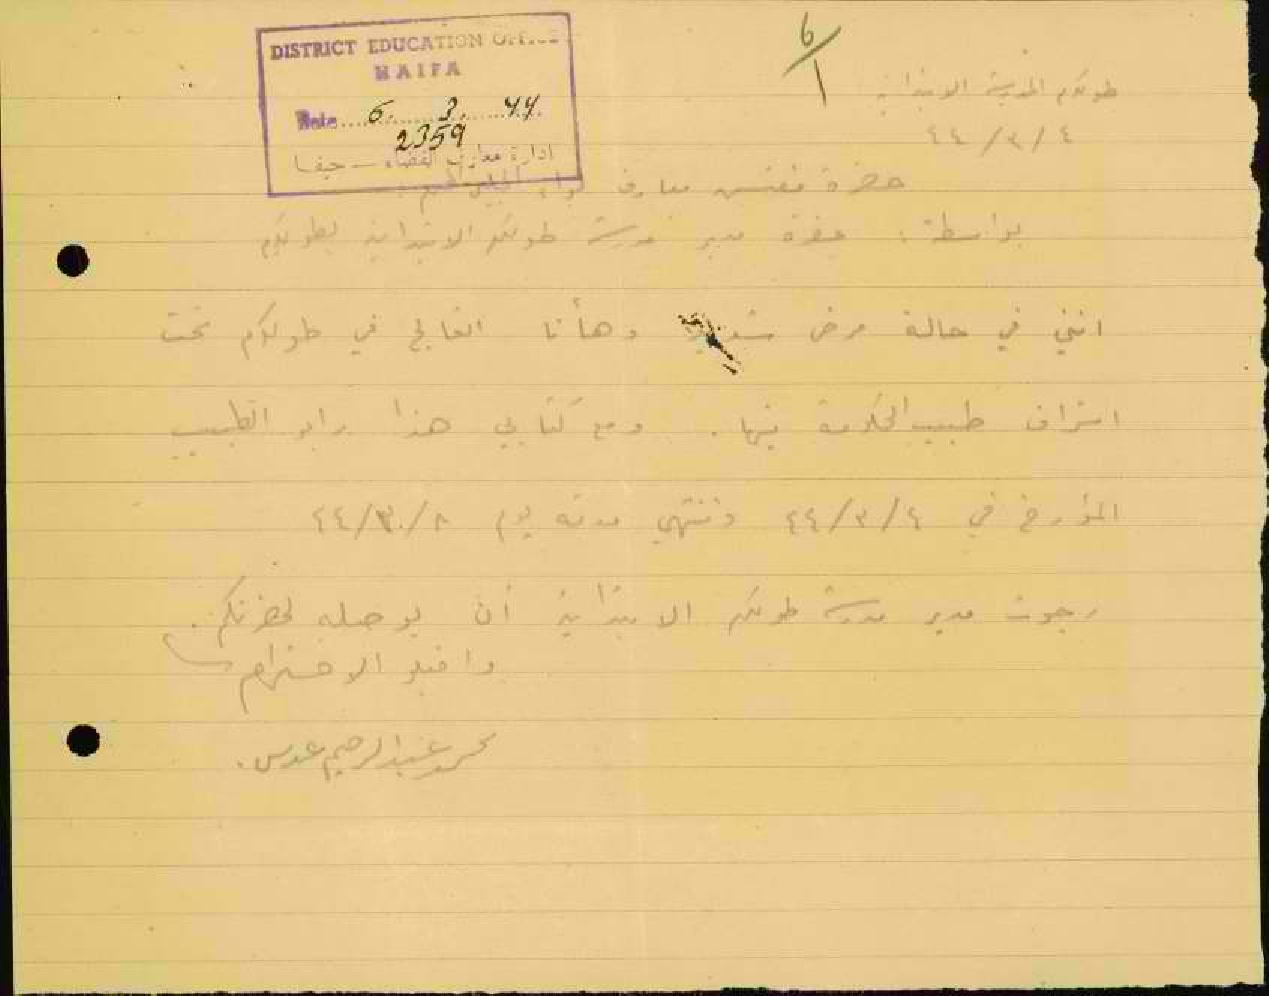 DISTRICT EDUCATION OFFICE
HAIFA
Date 6. 3. 44
2359
ادارة معارف القضاء — حيفا
6/1
طولكرم المدرسة الابتدائية
٤٤/٣/٤
حضرة مفتش معارف لواء
بواسطة: حضرة مدير مدرسة طولكرم الابتدائية بطولكرم
انني في حالة مرض شديد وهأنا اتعالج في طولكرم تحت
اشراف طبيب الحكومة فيها. ومع كتابي هذا رابور الطبيب
المؤرخ في ٤٤/٣/٤ وتنتهي مدته يوم ٤٤/٣/٨
رجوت مدير مدرسة طولكرم الابتدائية أن يوصله لحضرتكم.
واقبلو الاحترام
محمد عبد الرحيم عدس.